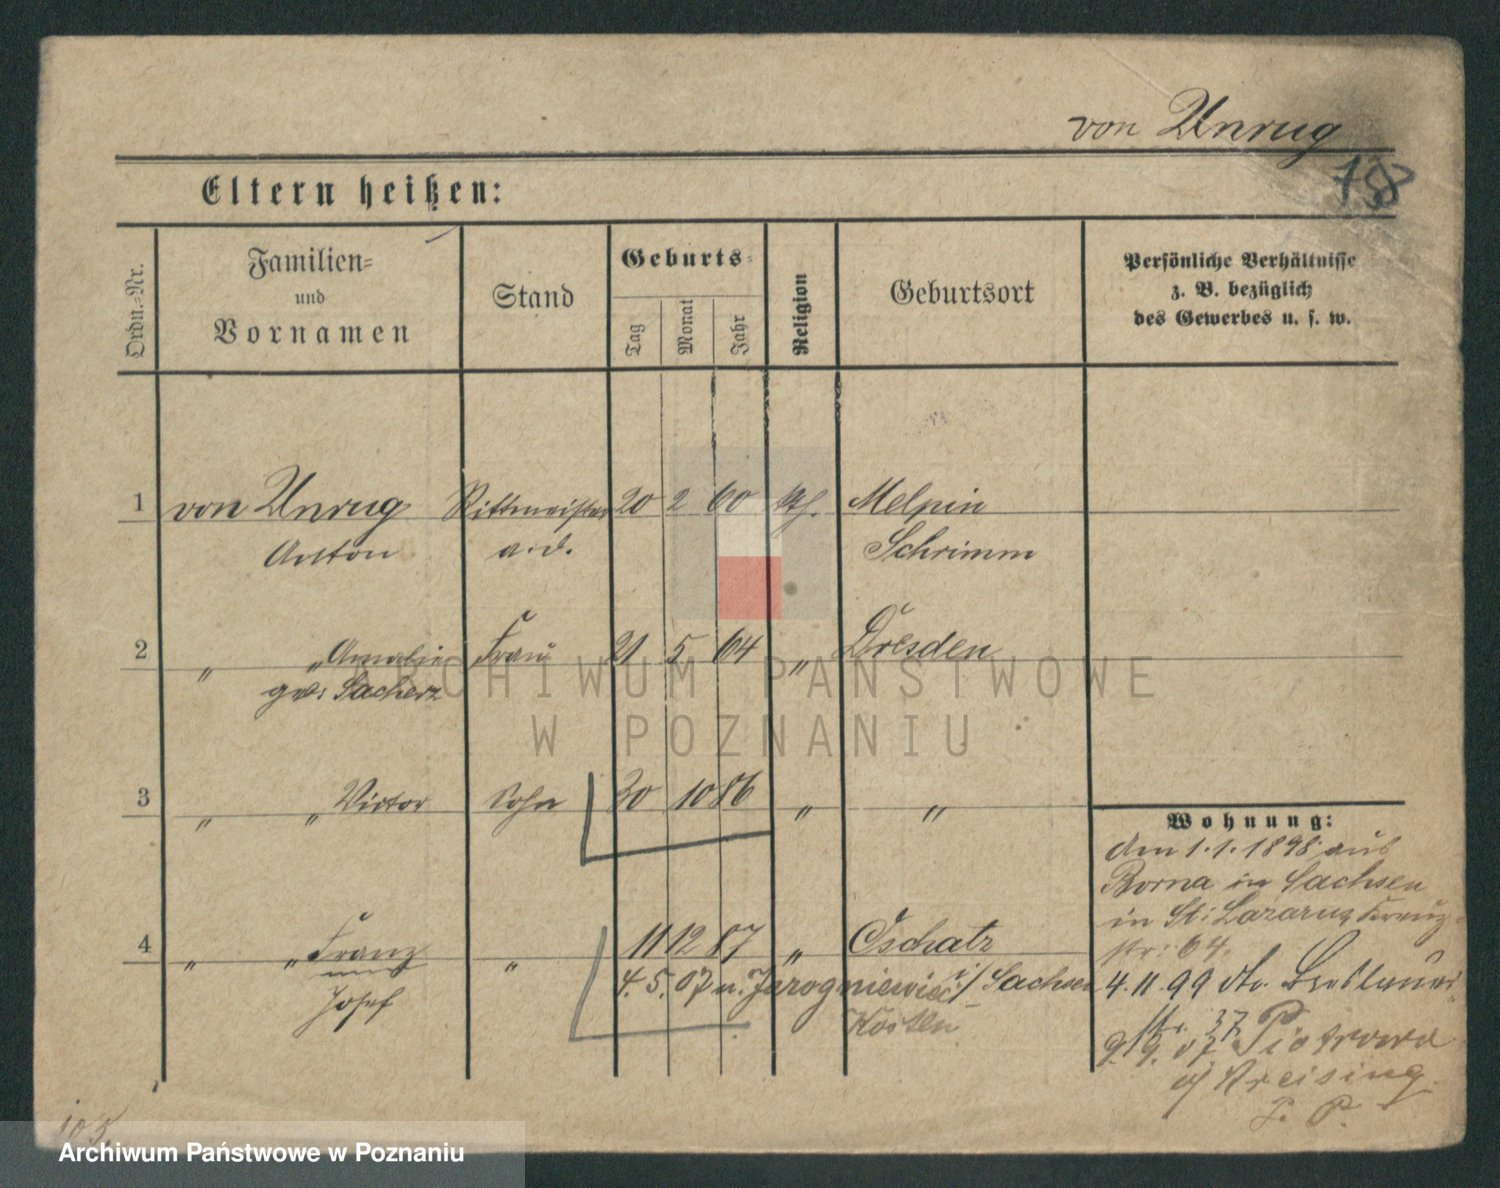 von Unrug
Eltern heißen:
Ordn.-Nr.
Familien-
und
Vornamen
Stand
Geburts-
Tag
Monat
Jahr
Religion
Geburtsort
Persönliche Verhältnisse
z. B. bezüglich
des Gewerbes u. s. w.
1 von Unrug Rittmeister 20 2 60 kth. Melpin
Anton a.d. Schrimm
2 " " Amalie Frau 21 5 64 " Dresden
geb: Sacherz
3 " " Victor Sohn 30 10 86 " "
Wohnung:
Am 1.1.1898 aus
Borna in Sachsen
in St: Lazarus, Kreuz-
str: 64.
4 " " Franz " 11 12 87 " Oschatz
i/ Sachsen
Josef
4. 5. 07 n. Jarogniewiec
Kosten
4. 11. 99 dto. Breslauer
Str. 37
9. 9. 07 Piotrowo
b/ Kreising
F. P.
105.
ARCHIWUM PAŃSTWOWE
W POZNANIU
Archiwum Państwowe w Poznaniu